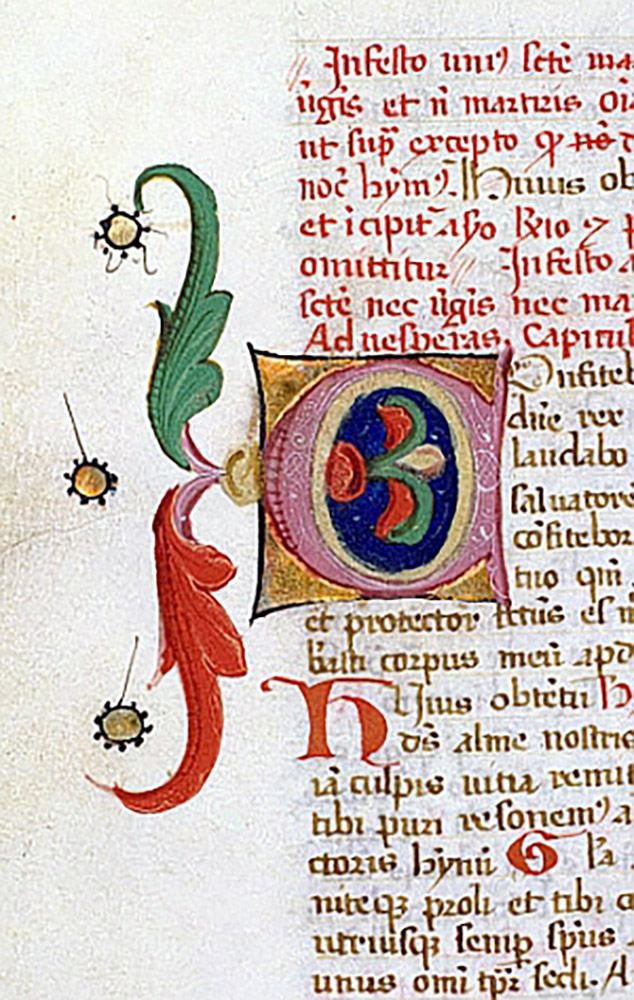 Infesto uniꝰ scte ma
ugis et n̄ martiris
ut sup̄ excepto
noc̄ hym Huius ob
et icipit
omittitur Infesto
scte nec ūgis nec ma
Ad uesperas. Capitul
Onfiteb
dn̄e rex
laudabo
saluatore
cōfitebor
tuo qm̄
et protector es
corpus meū apd
Huius obtētu
ds̄ alme nostris
iā culpis uitia remit
tibi puri resonemꝰ a
ctoris hymni Gła
niteqꝫ proli et tibi
utriusqꝫ semp̄ spūs
unus omī tp̄r secli. A